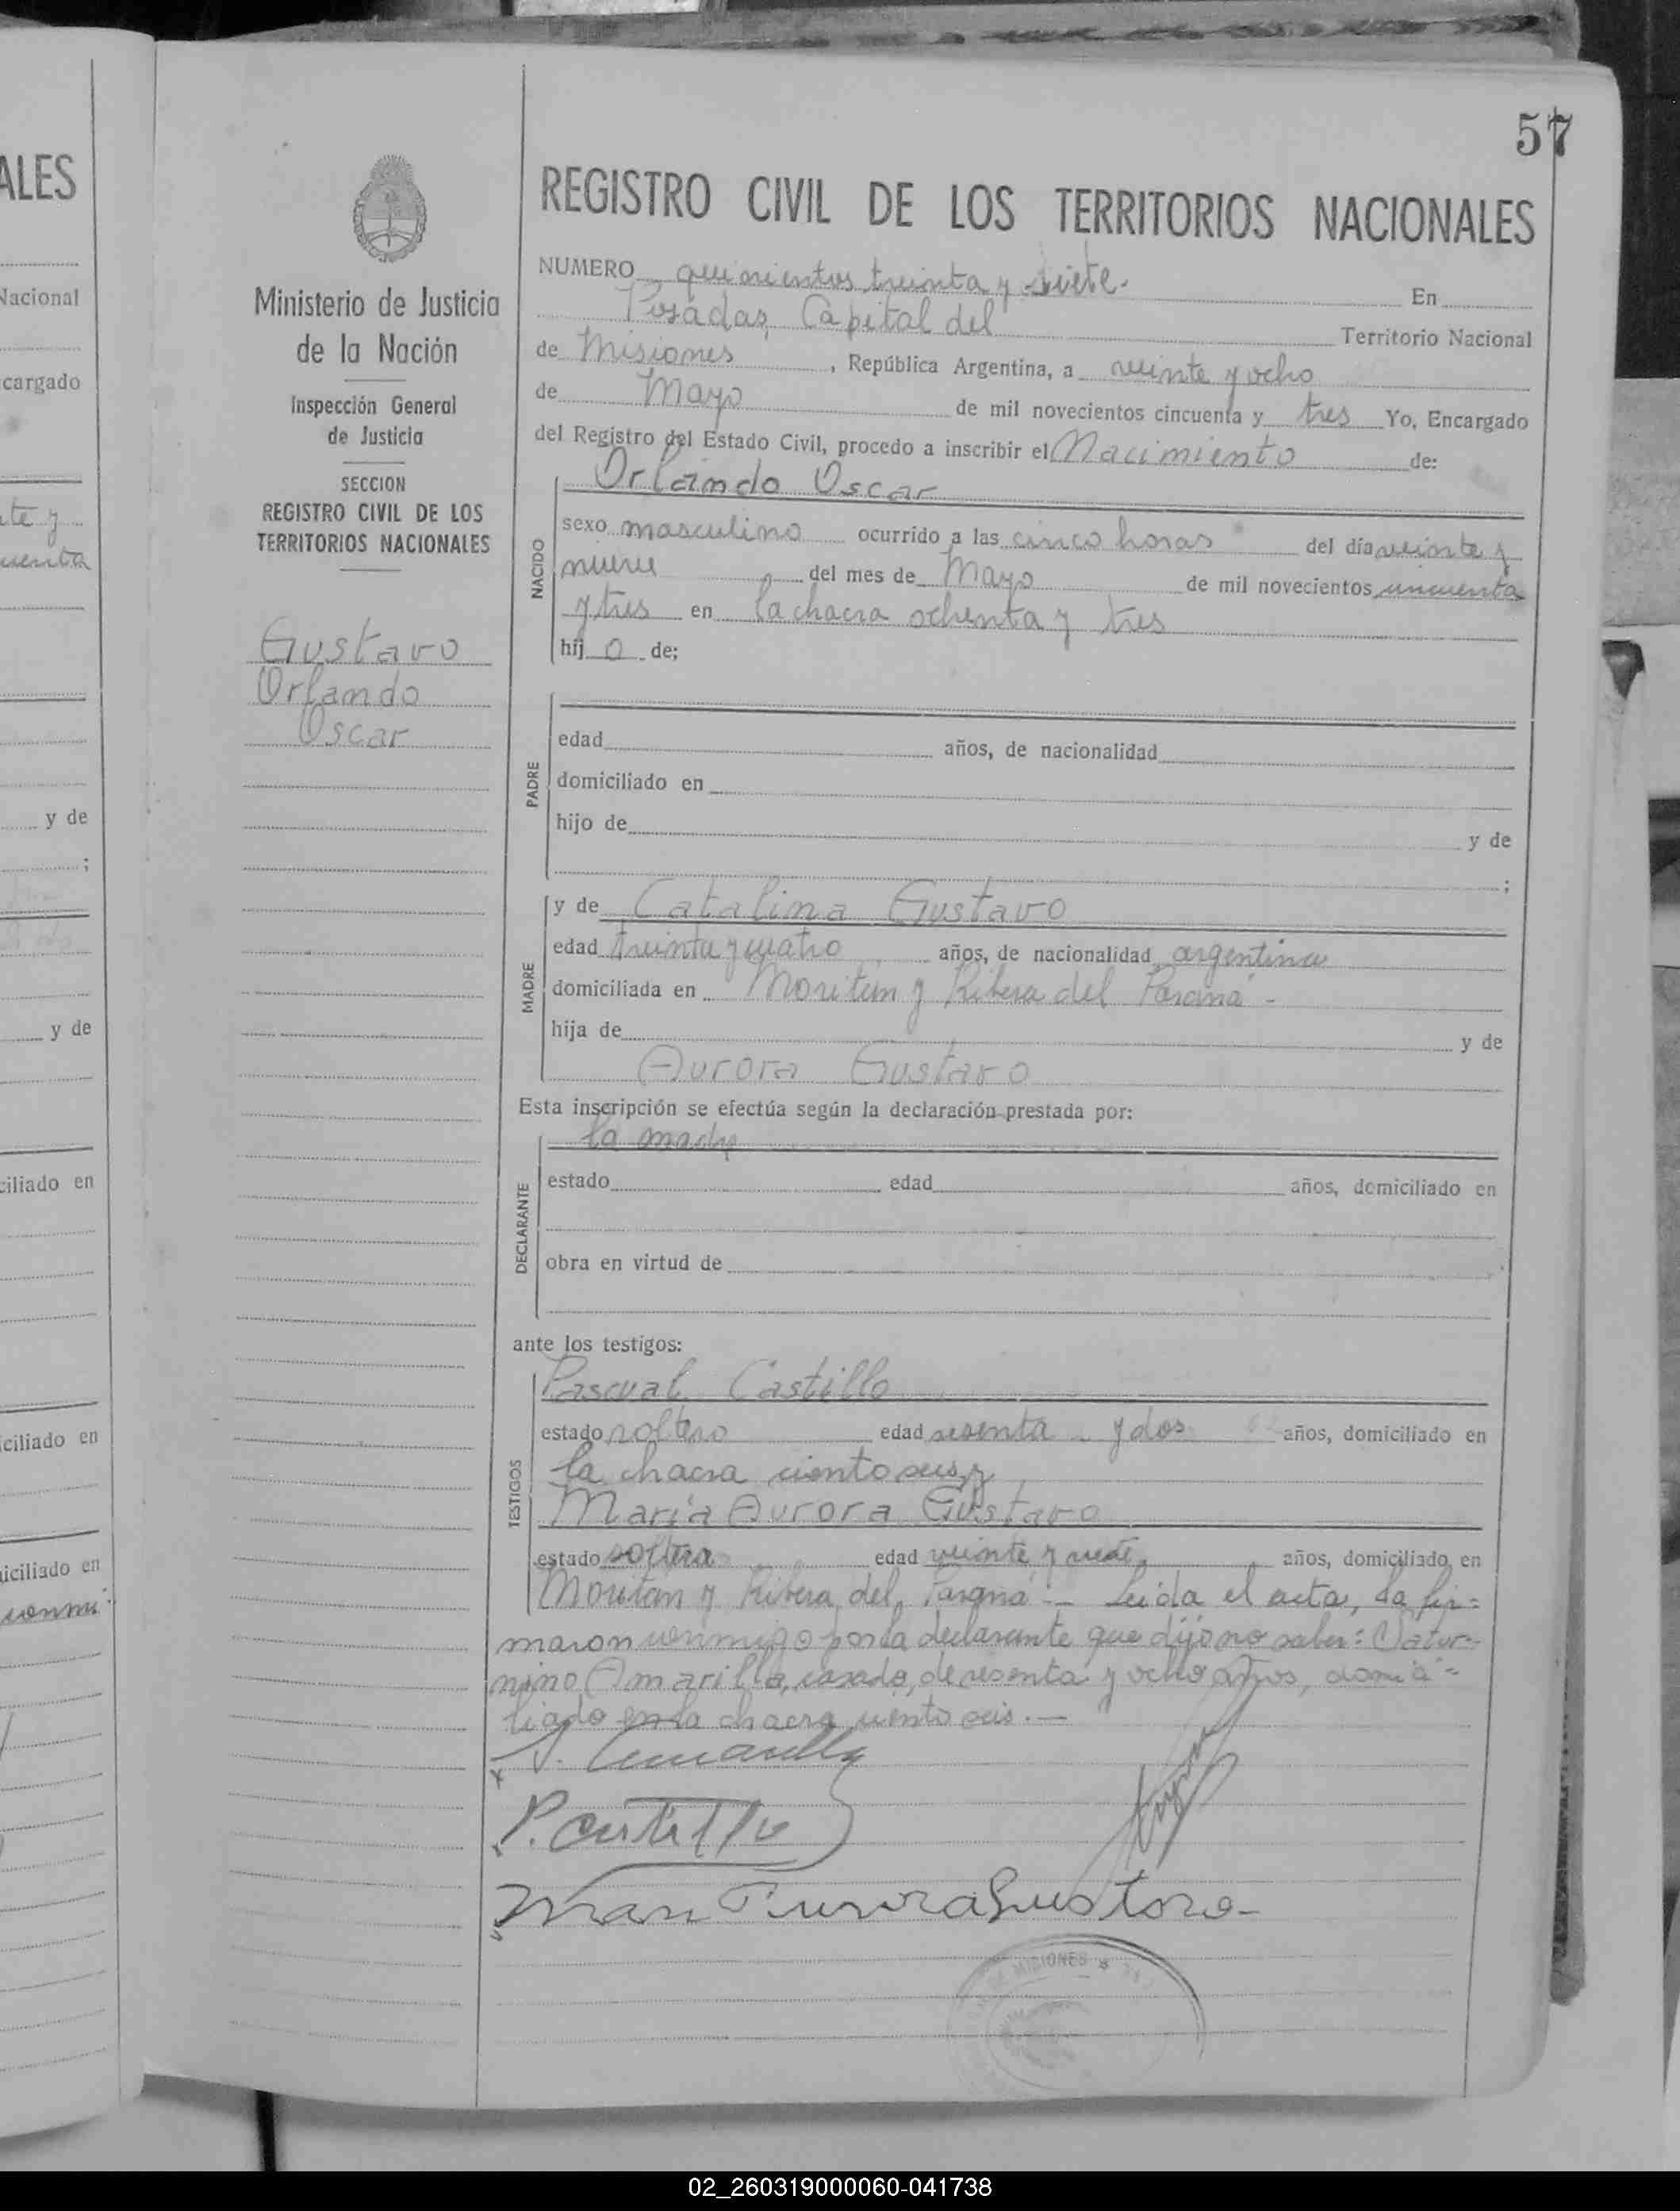 57
REGISTRO CIVIL DE LOS TERRITORIOS NACIONALES
Ministerio de Justicia
de la Nación
Inspección General
de Justicia
SECCION
REGISTRO CIVIL DE LOS
TERRITORIOS NACIONALES
Gustavo
Orlando
Oscar
NUMERO quinientos treinta y siete. En
Posadas, Capital del Territorio Nacional
de Misiones, República Argentina, a veinte y ocho
de Mayo de mil novecientos cincuenta y tres Yo, Encargado
del Registro del Estado Civil, procedo a inscribir el Nacimiento de:
Orlando Oscar
NACIDO
sexo masculino ocurrido a las cinco horas del día veinte y
nueve del mes de Mayo de mil novecientos cincuenta
y tres en la chacra ochenta y tres
hij o de;
PADRE
edad años, de nacionalidad
domiciliado en
hijo de y de
;
MADRE
y de Catalina Gustavo
edad treinta y cuatro años, de nacionalidad argentina
domiciliada en y Ribera del Paraná -
hija de y de
Aurora Gustavo
Esta inscripción se efectúa según la declaración prestada por:
DECLARANTE
la madre
estado edad años, domiciliado en
obra en virtud de
ante los testigos:
TESTIGOS
Pascual Castillo
estado soltero edad sesenta y dos años, domiciliado en
la chacra ciento seis, y
María Aurora Gustavo
estado soltera edad veinte y años, domiciliado en
y Ribera del Paraná.- Leída el acta, la fir=
maron conmigo por la declarante que dijo no saber: Satur-
nino Amarilla, casado, de sesenta y ocho años, domici=
liado en la chacra ciento seis.—
S. Amarilla
P. Castillo
Maria Aurora Gustavo-
MISIONES
ALES
Nacional
cargado
y de
;
y de
ciliado en
ciliado en
iciliado en
02_260319000060-041738